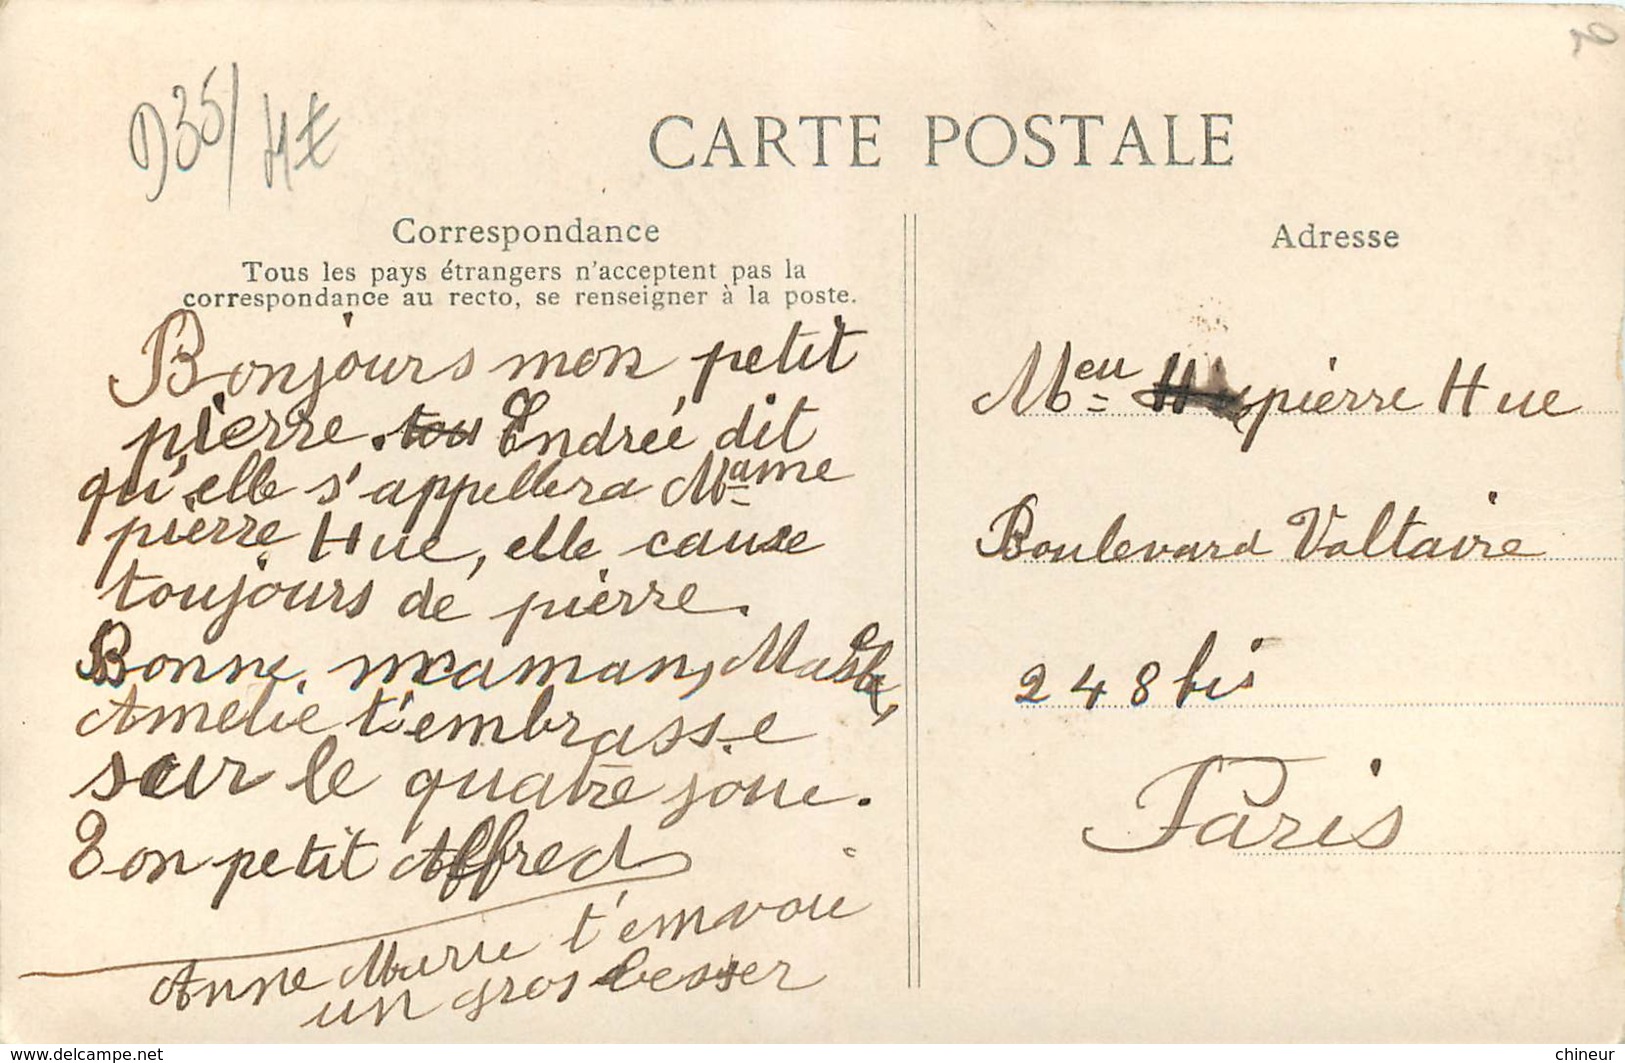 D35/
CARTE POSTALE
Correspondance
Tous les pays étrangers n'acceptent pas la
correspondance au recto, se renseigner à la poste.
Bonjours mon petit
pierre. tou Endrée dit
qu'elle s'appellera Mame
pierre Hue, elle cause
toujours de pierre.
Bonne maman,
Amelie t'embrasse
sur le quatre joue.
Ton petit Alfred
Anne Marie t'emvoie
un gros besser
Adresse
Meu pierre Hue
Boulevard Voltaire
248 bis
Paris
www.delcampe.net
chineur